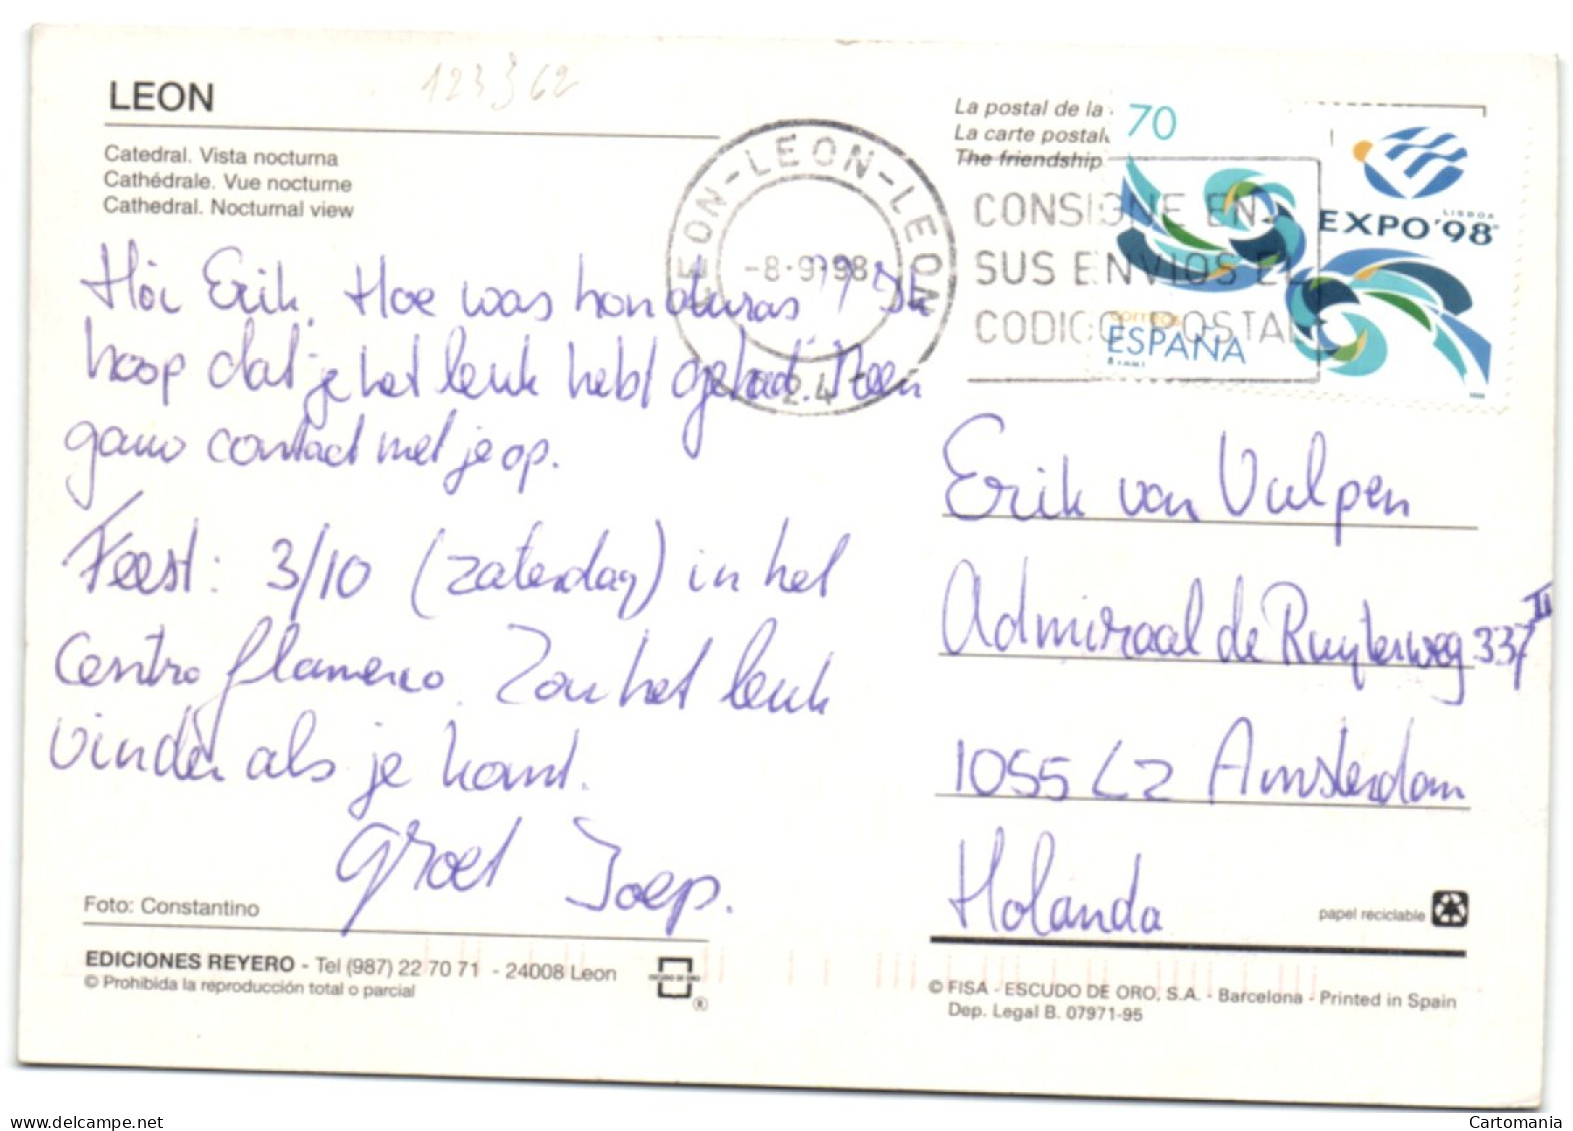 LEON
123362
Catedral. Vista nocturna
Cathédrale. Vue nocturne
Cathedral. Nocturnal view
Hoi Erik. Hoe was honduras? Ik
hoop dat je het leuk hebt gehad. Neem
gauw contact met je op.
Feest: 3/10 (zaterdag) in het
Centro flamenco. Zou het leuk
vinden als je komt.
groet Joep.
Foto: Constantino
EDICIONES REYERO - Tel (987) 22 70 71 - 24008 Leon
© Prohibida la reproducción total o parcial
®
LEON-LEON-LEON
-8-9-98
24
La postal de la
La carte postale
The friendship
CONSIGNE EN
SUS ENVIOS EL
CODIGO POSTAL
70
LISBOA
EXPO'98
correos
ESPAÑA
Erik van Vulpen
Admiraal de Ruyterweg 337 II
1055 LZ Amsterdam
Holanda
papel reciclable
© FISA - ESCUDO DE ORO, S.A. - Barcelona - Printed in Spain
Dep. Legal B. 07971-95
Cartomania
www.delcampe.net